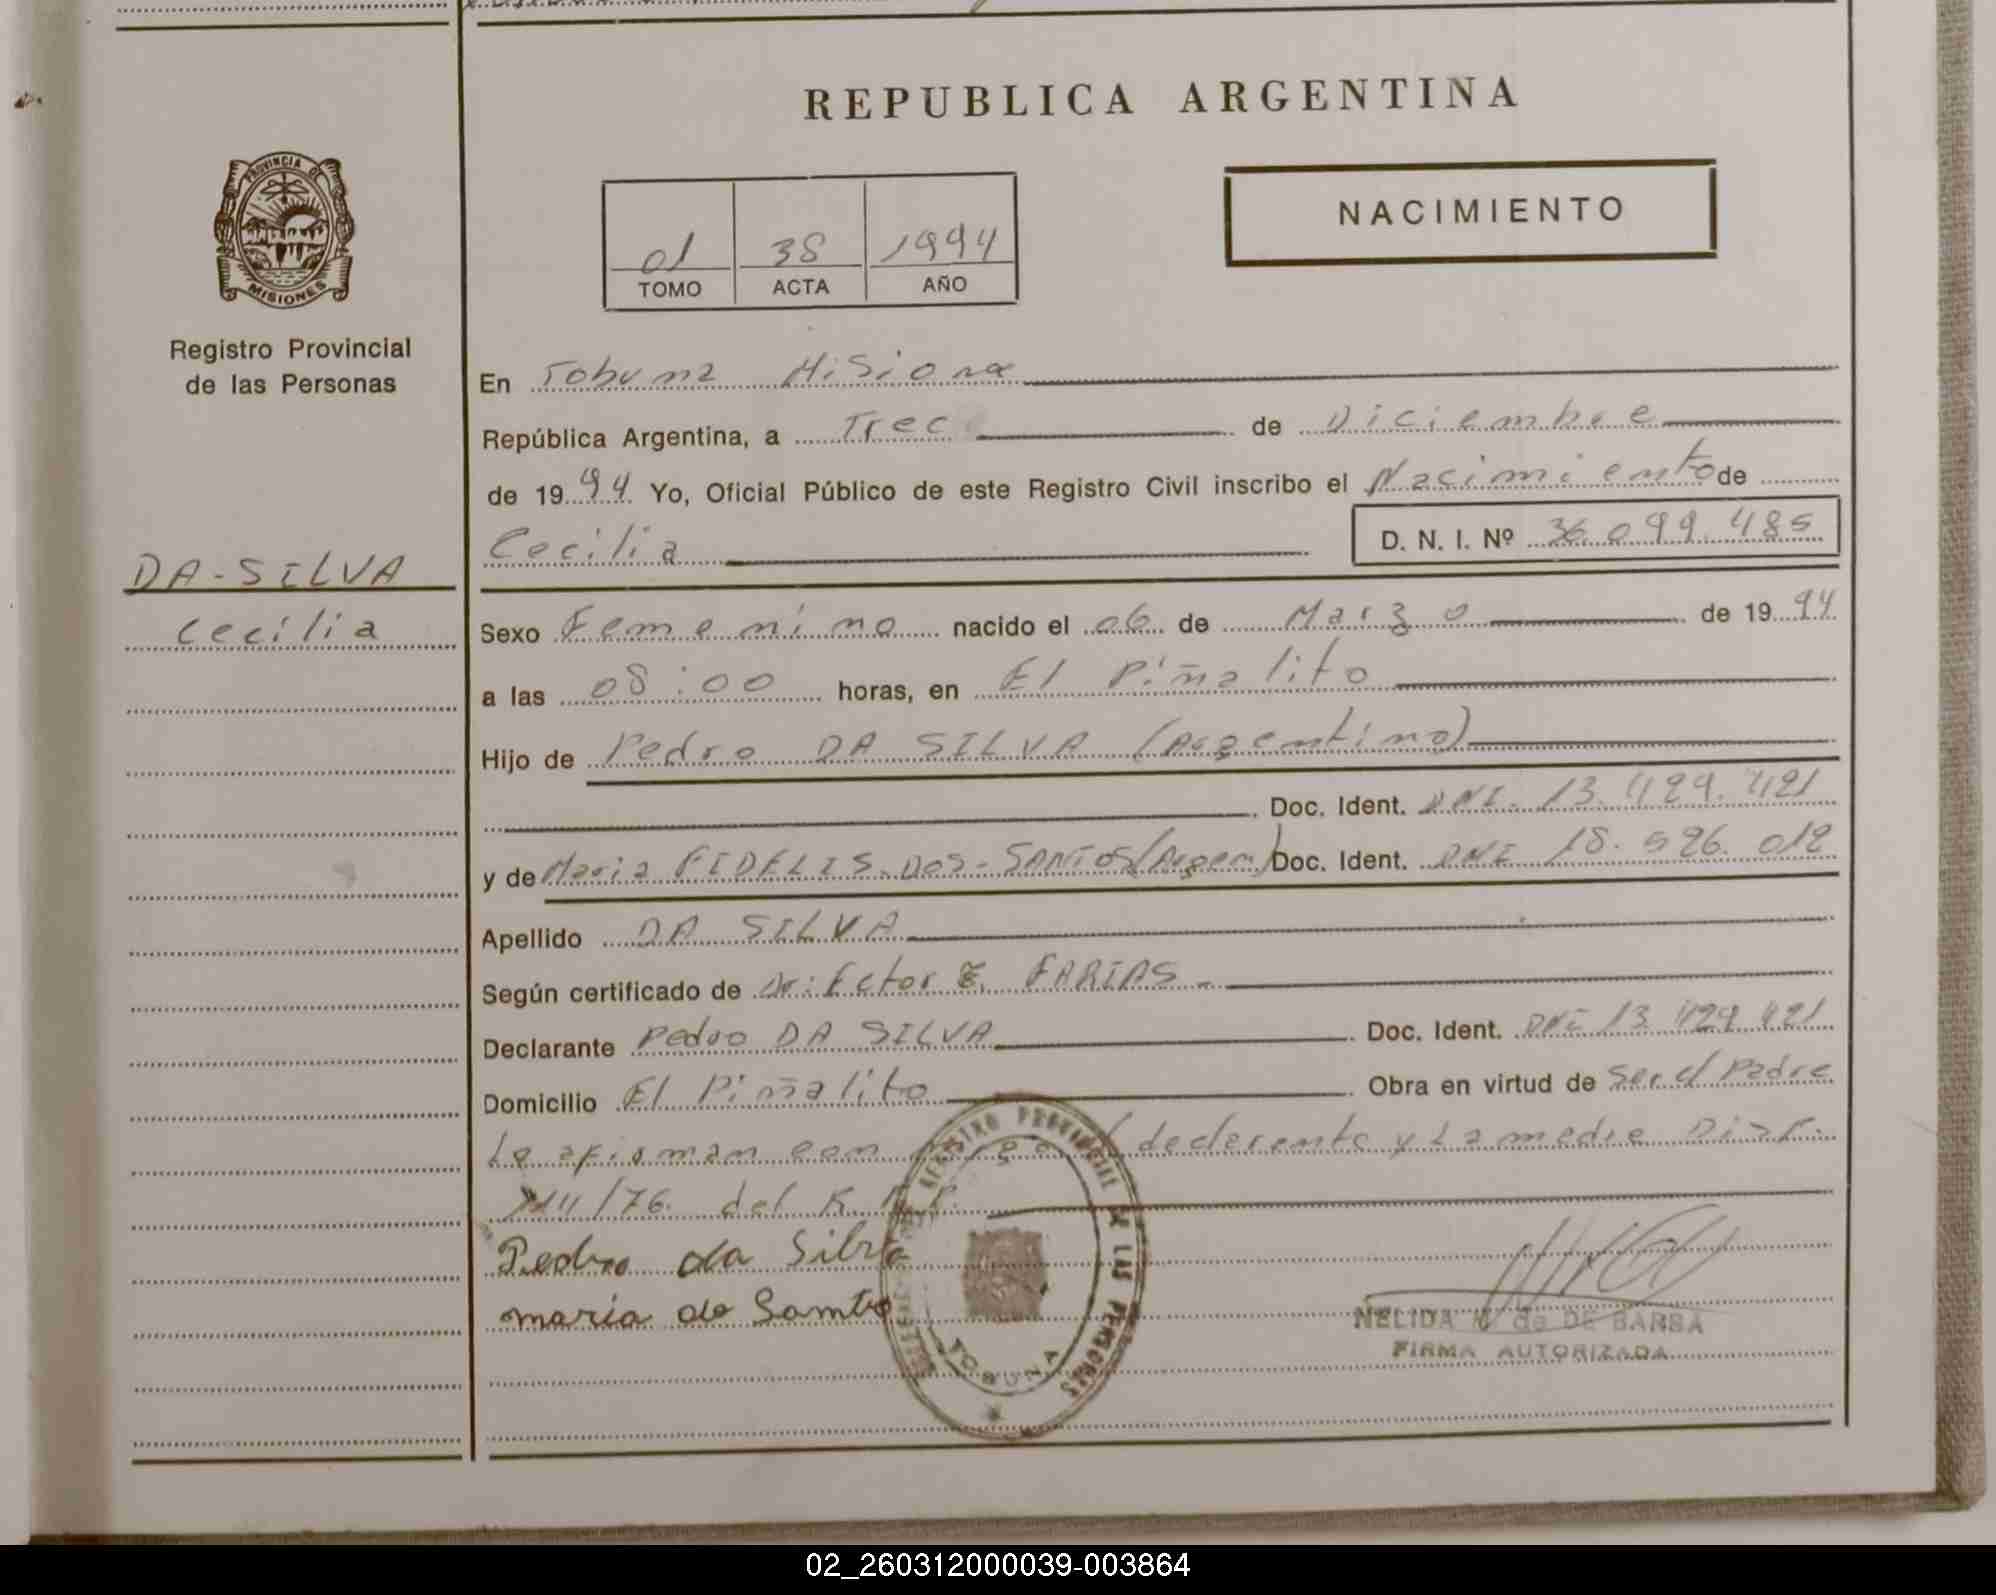 REPUBLICA ARGENTINA
PROVINCIA DE
MISIONES
Registro Provincial
de las Personas
DA-SILVA
Cecilia
01 38 1994
TOMO ACTA AÑO
NACIMIENTO
En Tobuna Misiones
República Argentina, a Trece de Diciembre
de 1994 Yo, Oficial Público de este Registro Civil inscribo el Nacimiento de
Cecilia D. N. I. Nº 36.099.485
Sexo Femenino nacido el 06 de Marzo de 1994
a las 08:00 horas, en El Piñalito
Hijo de Pedro DA SILVA (Argentino)
Doc. Ident. DNI. 13.429.421
y de Maria FIDELIS-DOS-SANTOS (Argen) Doc. Ident. DNI 18.526.012
Apellido DA SILVA
Según certificado de Dr: Ector E. FARIAS
Declarante Pedro DA SILVA Doc. Ident. DNI 13.429.421
Domicilio El Piñalito Obra en virtud de Ser el Padre
Lo afirman con declarante y La madre Disp.
XIII/76. del R.
Pedro da Silva
maria do Santo
REGISTRO PROVINCIAL DE LAS PERSONAS
TOBUNA
NELIDA de DE BARBA
FIRMA AUTORIZADA
02_260312000039-003864